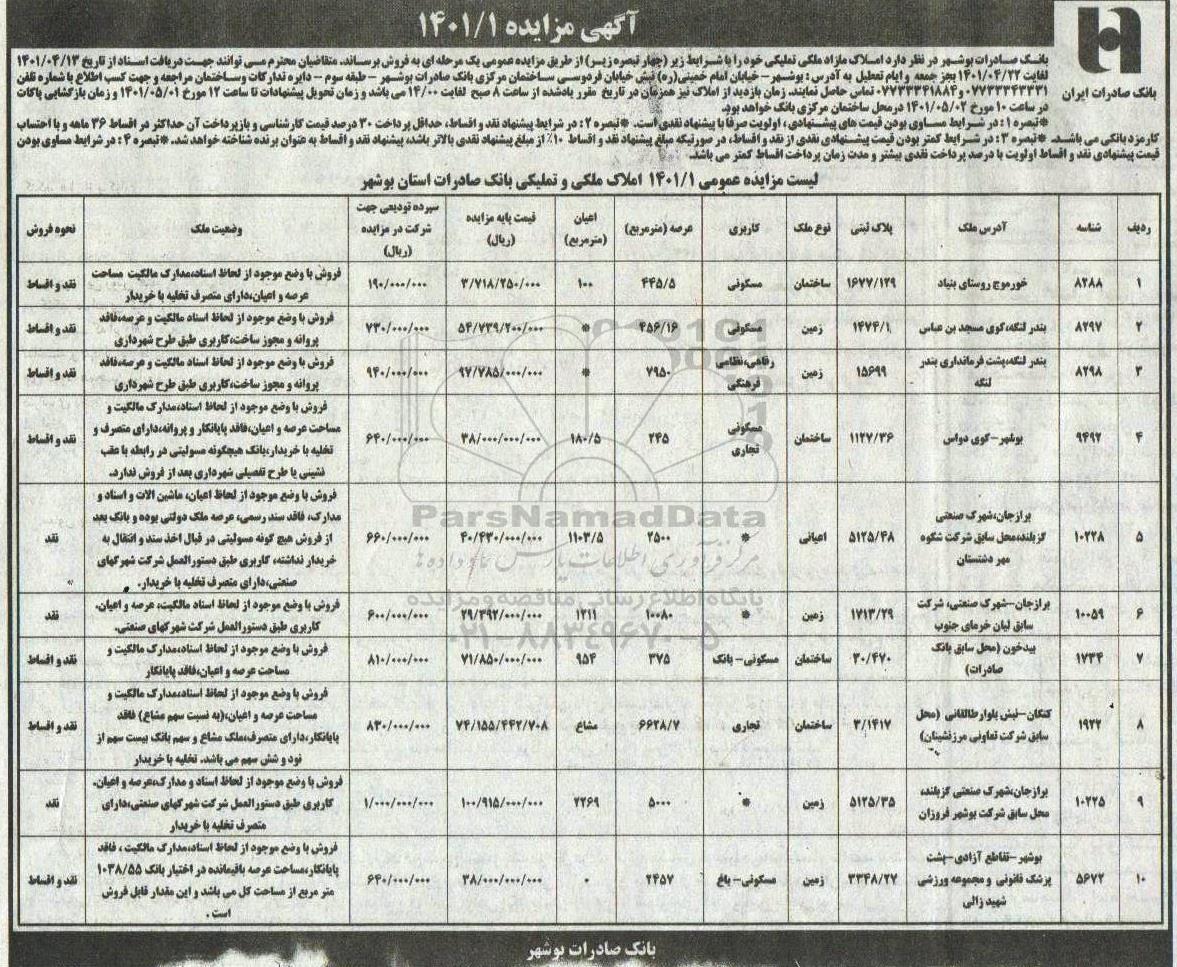 آگهی مزایده ۱۴۰۱/۱
بانک صادرات ایران
بانک صادرات بوشهر در نظر دارد املاک مازاد ملکی تملیکی خود را با شرایط زیر (چهار تبصره زیر) از طریق مزایده عمومی یک مرحله ای به فروش برساند. متقاضیان محترم می توانند جهت دریافت اسناد از تاریخ ۱۴۰۱/۰۴/۱۳
لغایت ۱۴۰۱/۰۴/۲۲ بجز جمعه و ایام تعطیل به آدرس : بوشهر – خیابان امام خمینی(ره) نبش خیابان فردوسی ساختمان مرکزی بانک صادرات بوشهر – طبقه سوم – دایره تدارکات وساختمان مراجعه و جهت کسب اطلاع با شماره تلفن
۰۷۷۳۳۳۴۳۳۳۱ و ۰۷۷۳۳۳۴۱۸۸۴ تماس حاصل نمایند. زمان بازدید از املاک نیز همزمان در تاریخ مقرر یادشده از ساعت ۸ صبح لغایت ۱۴/۰۰ می باشد و زمان تحویل پیشنهادات تا ساعت ۱۲ مورخ ۱۴۰۱/۰۵/۰۱ و زمان بازگشایی پاکات
در ساعت ۱۰ مورخ ۱۴۰۱/۰۵/۰۲ درمحل ساختمان مرکزی بانک خواهد بود.
*تبصره ۱ : در شرایط مساوی بودن قیمت های پیشنهادی ، اولویت صرفاً با پیشنهاد نقدی است. *تبصره ۲ : در شرایط پیشنهاد نقد و اقساط، حداقل پرداخت ۳۰ درصد قیمت کارشناسی و بازپرداخت آن حداکثر در اقساط ۳۶ ماهه و با احتساب
کارمزد بانکی می باشد. *تبصره ۳ : در شرایط کمتر بودن قیمت پیشنهادی نقدی از نقد و اقساط، در صورتیکه مبلغ پیشنهاد نقد و اقساط ۱۰٪ از مبلغ پیشنهاد نقدی بالاتر باشد، پیشنهاد نقد و اقساط به عنوان برنده شناخته خواهد شد. *تبصره ۴ : در شرایط مساوی بودن
قیمت پیشنهادی نقد و اقساط اولویت با درصد پرداخت نقدی بیشتر و مدت زمان پرداخت اقساط کمتر می باشد.
لیست مزایده عمومی ۱۴۰۱/۱ املاک ملکی و تملیکی بانک صادرات استان بوشهر
ردیف شناسه آدرس ملک پلاک ثبتی نوع ملک کاربری عرصه (مترمربع) اعیان (مترمربع) قیمت پایه مزایده (ریال) سپرده تودیعی جهت شرکت در مزایده (ریال) وضعیت ملک نحوه فروش
۱ ۸۲۸۸ خورموج روستای بنیاد ۱۶۷۷/۱۲۹ ساختمان مسکونی ۴۴۵/۵ ۱۰۰ ۳/۷۱۸/۲۵۰/۰۰۰ ۱۹۰/۰۰۰/۰۰۰ فروش با وضع موجود از لحاظ اسناد،مدارک مالکیت مساحت عرصه و اعیان،دارای متصرف تخلیه با خریدار نقد و اقساط
۲ ۸۲۹۷ بندر لنگه،کوی مسجد بن عباس ۱۴۷۴/۱ زمین مسکونی ۴۵۶/۱۶ * ۵۴/۷۳۹/۲۰۰/۰۰۰ ۷۳۰/۰۰۰/۰۰۰ فروش با وضع موجود از لحاظ اسناد مالکیت و عرصه،فاقد پروانه و مجوز ساخت،کاربری طبق طرح شهرداری نقد و اقساط
۳ ۸۲۹۸ بندر لنگه،پشت فرمانداری بندر لنگه ۱۵۶۹۹ زمین رفاهی،نظامی فرهنگی ۷۹۵۰ * ۹۷/۷۸۵/۰۰۰/۰۰۰ ۹۴۰/۰۰۰/۰۰۰ فروش با وضع موجود از لحاظ اسناد مالکیت و عرصه،فاقد پروانه و مجوز ساخت،کاربری طبق طرح شهرداری نقد و اقساط
۴ ۹۴۹۲ بوشهر–کوی دواس ۱۱۲۷/۳۶ ساختمان مسکونی تجاری ۲۴۵ ۱۸۰/۵ ۳۸/۰۰۰/۰۰۰/۰۰۰ ۶۴۰/۰۰۰/۰۰۰ فروش با وضع موجود از لحاظ اسناد،مدارک مالکیت و مساحت عرصه و اعیان،فاقد پایانکار و پروانه،دارای متصرف و تخلیه با خریدار،بانک هیچگونه مسولیتی در رابطه با عقب نشینی یا طرح تفصیلی شهرداری بعد از فروش ندارد. نقد و اقساط
۵ ۱۰۲۲۸ برازجان،شهرک صنعتی گزبلند،محل سابق شرکت شکوه مهر دشتستان ۵۱۲۵/۴۸ اعیانی * ۲۵۰۰ ۱۱۰۳/۵ ۴۰/۴۳۰/۰۰۰/۰۰۰ ۶۶۰/۰۰۰/۰۰۰ فروش با وضع موجود از لحاظ اعیان، ماشین الات و اسناد و مدارک، فاقد سند رسمی، عرصه ملک دولتی بوده و بانک بعد از فروش هیچ گونه مسولیتی در قبال اخذ سند و انتقال به خریدار نداشته، کاربری طبق دستورالعمل شرکت شهرکهای صنعتی،دارای متصرف تخلیه با خریدار. نقد
۶ ۱۰۰۵۹ برازجان–شهرک صنعتی، شرکت سابق لیان خرمای جنوب ۱۷۱۳/۲۹ زمین * ۱۰۰۸۰ ۱۲۱۱ ۲۹/۳۹۲/۰۰۰/۰۰۰ ۶۰۰/۰۰۰/۰۰۰ فروش با وضع موجود از لحاظ اسناد مالکیت، عرصه و اعیان. کاربری طبق دستورالعمل شرکت شهرکهای صنعتی. نقد
۷ ۱۷۳۴ بیدخون (محل سابق بانک صادرات) ۳۰/۴۷۰ ساختمان مسکونی–بانک ۳۷۵ ۹۵۴ ۷۱/۸۵۰/۰۰۰/۰۰۰ ۸۱۰/۰۰۰/۰۰۰ فروش با وضع موجود از لحاظ اسناد،مدارک مالکیت و مساحت عرصه و اعیان،فاقد پایانکار نقد و اقساط
۸ ۱۹۲۲ کنگان–نبش بلوارطالقانی (محل سابق شرکت تعاونی مرزنشینان) ۳/۱۴۱۷ ساختمان تجاری ۶۶۲۸/۷ مشاع ۷۴/۱۵۵/۴۴۲/۷۰۸ ۸۳۰/۰۰۰/۰۰۰ فروش با وضع موجود از لحاظ اسناد،مدارک مالکیت و مساحت عرصه و اعیان،(به نسبت سهم مشاع) فاقد پایانکار،دارای متصرف،ملک مشاع و سهم بانک بیست سهم از نود و شش سهم می باشد. تخلیه با خریدار نقد و اقساط
۹ ۱۰۲۲۵ برازجان،شهرک صنعتی گزبلند، محل سابق شرکت بوشهر فروزان ۵۱۲۵/۳۵ زمین * ۵۰۰۰ ۲۲۶۹ ۱۰۰/۹۱۵/۰۰۰/۰۰۰ ۱/۰۰۰/۰۰۰/۰۰۰ فروش با وضع موجود از لحاظ اسناد و مدارک،عرصه و اعیان. کاربری طبق دستورالعمل شرکت شهرکهای صنعتی،دارای متصرف تخلیه با خریدار نقد
۱۰ ۵۶۷۲ بوشهر–تقاطع آزادی–پشت پزشک قانونی و مجموعه ورزشی شهید زالی ۳۳۴۸/۲۷ زمین مسکونی–باغ ۲۴۵۷ ۰ ۳۸/۰۰۰/۰۰۰/۰۰۰ ۶۴۰/۰۰۰/۰۰۰ فروش با وضع موجود از لحاظ اسناد،مدارک مالکیت ، فاقد پایانکار،مساحت عرصه باقیمانده در اختیار بانک ۱۰۳۸/۵۵ متر مربع از مساحت کل می باشد و این مقدار قابل فروش است . نقد و اقساط
ParsNamadData
مرکز فرآوری اطلاعات پارس نماد داده ها
پایگاه اطلاع رسانی مناقصه و مزایده
۰۲۱-۸۸۳۴۹۶۷۰-۵
بانک صادرات بوشهر